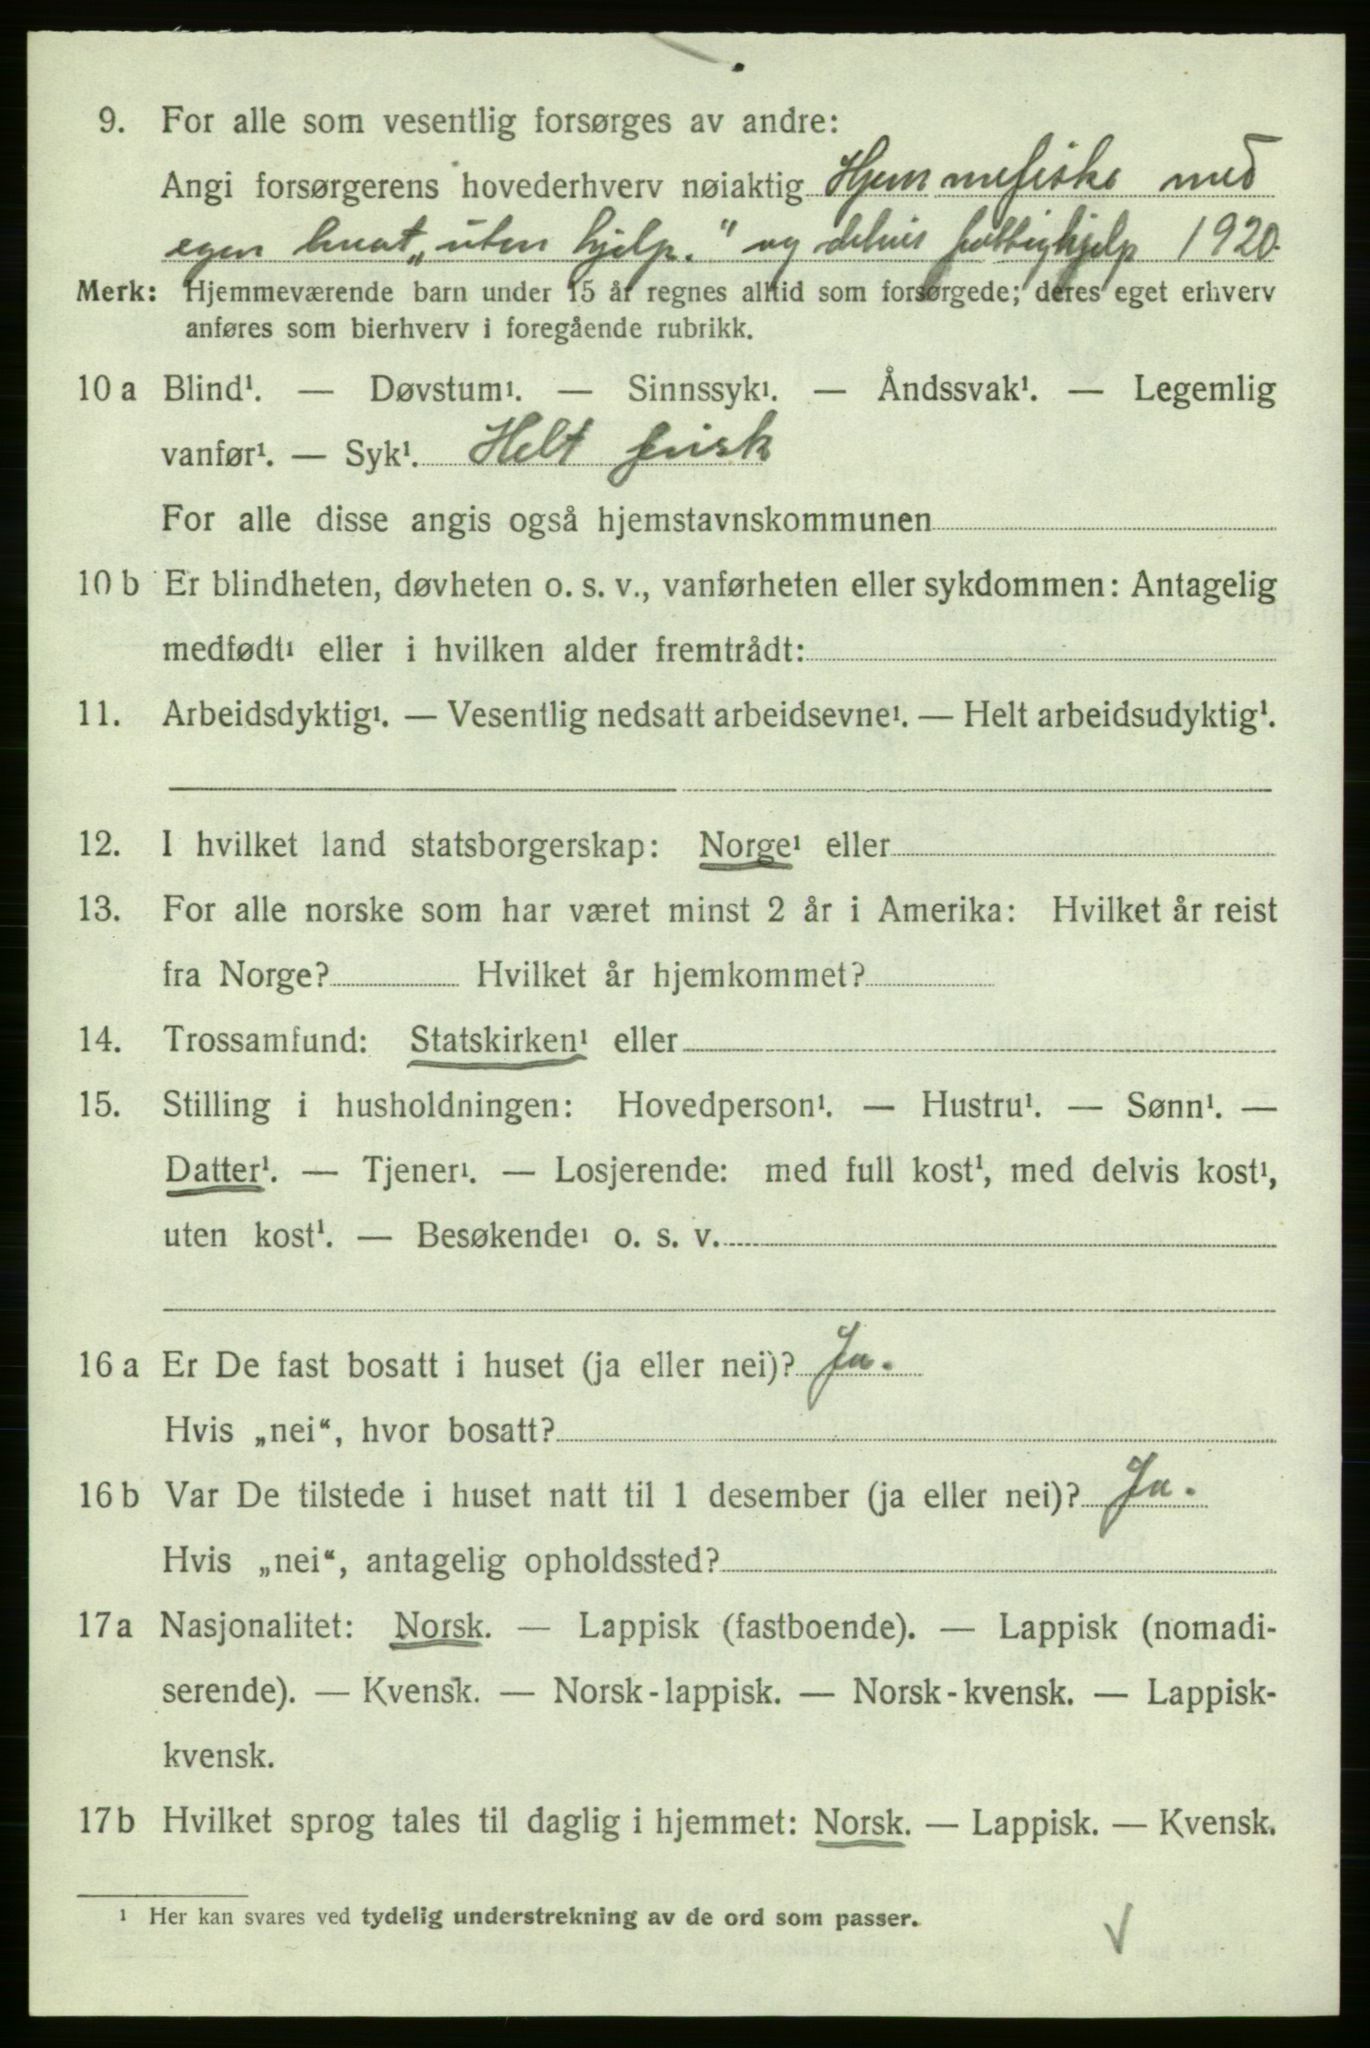 9. For alle som vesentlig forsørges av andre:
Angi forsørgerens hovederhverv nøiaktig Hjemmefiske med
egen baat „uten hjelp." og delvis fattighjelp 1920.
Merk: Hjemmeværende barn under 15 år regnes alltid som forsørgede; deres eget erhverv
anføres som bierhverv i foregående rubrikk.
10 a Blind¹. — Døvstum¹. — Sinnssyk¹. — Åndssvak¹. — Legemlig
vanfør¹. — Syk¹. Helt frisk
For alle disse angis også hjemstavnskommunen
10 b Er blindheten, døvheten o. s. v., vanførheten eller sykdommen: Antagelig
medfødt¹ eller i hvilken alder fremtrådt:
11. Arbeidsdyktig¹. — Vesentlig nedsatt arbeidsevne¹. — Helt arbeidsudyktig¹.
12. I hvilket land statsborgerskap: Norge¹ eller
13. For alle norske som har været minst 2 år i Amerika: Hvilket år reist
fra Norge? Hvilket år hjemkommet?
14. Trossamfund: Statskirken¹ eller
15. Stilling i husholdningen: Hovedperson¹. — Hustru¹. — Sønn¹. —
Datter¹. — Tjener¹. — Losjerende: med full kost¹, med delvis kost¹,
uten kost¹. — Besøkende¹ o. s. v.
16 a Er De fast bosatt i huset (ja eller nei)? Ja.
Hvis „nei“, hvor bosatt?
16 b Var De tilstede i huset natt til 1 desember (ja eller nei)? Ja.
Hvis „nei“, antagelig opholdssted?
17 a Nasjonalitet: Norsk. — Lappisk (fastboende). — Lappisk (nomadi-
serende). — Kvensk. — Norsk-lappisk. — Norsk-kvensk. — Lappisk-
kvensk.
17 b Hvilket sprog tales til daglig i hjemmet: Norsk. — Lappisk. — Kvensk.
¹ Her kan svares ved tydelig understrekning av de ord som passer.